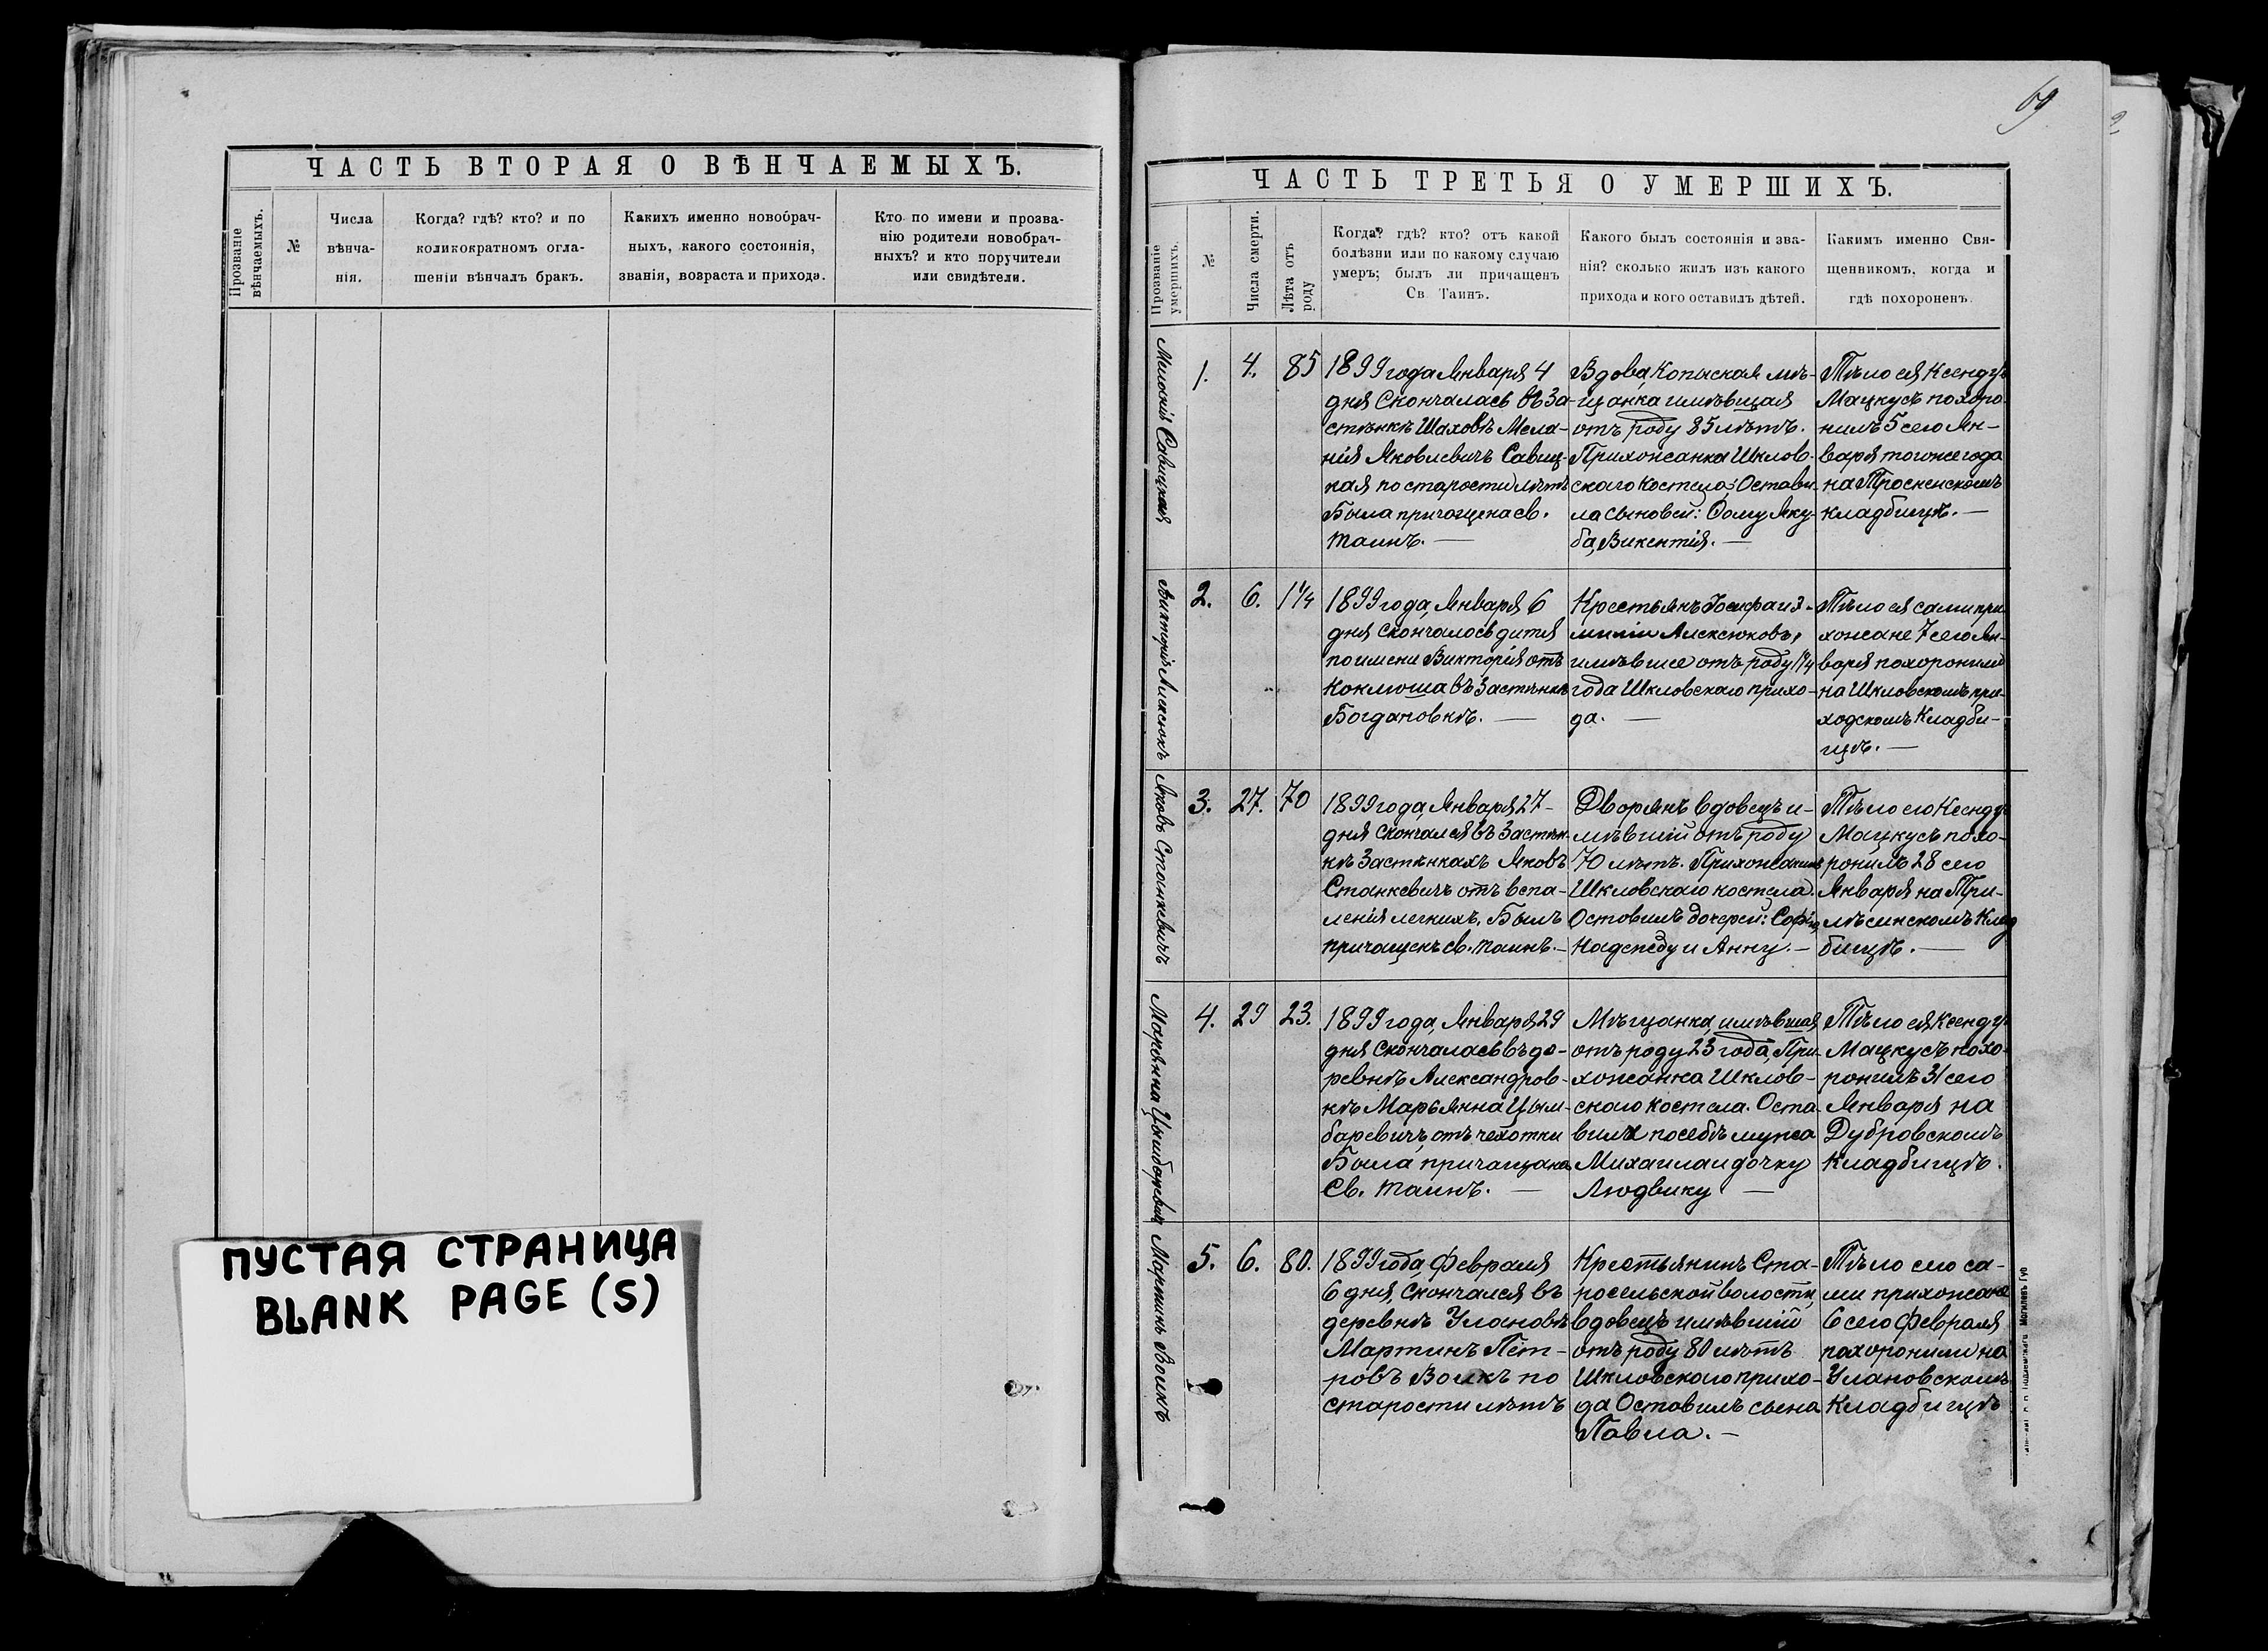 ЧАСТЬ ВТОРАЯ О ВѢНЧАЕМЫХЪ.
Прозваніе
вѣнчаемыхъ.
№
Числа
вѣнча-
нія.
Когда? гдѣ? кто? и по
коликократномъ огла-
шеніи вѣнчалъ бракъ.
Какихъ именно новобрач-
ныхъ, какого состоянія,
званія, возраста и прихода.
Кто по имени и прозва-
нію родители новобрач-
ныхъ? и кто поручители
или свидѣтели.
ПУСТАЯ СТРАНИЦА
BLANK PAGE (S)
69
ЧАСТЬ ТРЕТЬЯ О УМЕРШИХЪ.
Прозваніе
умершихъ.
№
Числа смерти.
Лѣта отъ
роду
Когда? гдѣ? кто? отъ какой
болѣзни или по какому случаю
умеръ; былъ ли причащенъ
Св Таинъ.
Какого былъ состоянія и зва-
нія? сколько жилъ изъ какого
прихода и кого оставилъ дѣтей.
Какимъ именно Свя-
щенникомъ, когда и
гдѣ похороненъ.
Савицкая
1.
4.
85
1899 года Января 4
дня Скончалась въ За-
стѣнкѣ Шаховѣ Мела-
нія Яковлевичъ Савиц-
кая по старости лѣтъ
Была причащена св.
таинъ. —
Вдова, Копыская мѣ-
щанка имѣвщая
отъ роду 85 лѣтъ.
Прихожанка Шклов-
скаго Костела; Остави-
ла сыновей: Фому Яку-
ба, Викентія. —
Тѣло ея Ксендзъ
Мацкусъ похоро-
нилъ 5 сего Ян-
варя того же года
на
кладбищѣ. —
Алексюкъ
2.
6.
1 1/4
1899 года, Января 6
дня скончалось дитя
по имени Викторія отъ
Коклюша въ Застѣнкѣ
Богдановкѣ. —
Крестьянъ Іосифа и Э-
миліи Алексюковъ,
имѣвшее отъ роду 1 1/4
года Шкловскаго прихо-
да. —
Тѣло ея сами при-
хожане 7 сего Ян-
варя похоронили
на Шкловскомъ при-
ходскомъ Кладби-
щѣ. —
Яковъ Станкевичъ
3.
27.
70
1899 года, Января 27-
дня скончался въ Застѣн-
кѣ Застѣнкахъ Яковъ
Станкевичъ отъ воспа-
ленія легкихъ. Былъ
причащенъ св. таинъ. —
Дворянъ вдовецъ и-
мѣвшій отъ роду
70 лѣтъ. Прихожанинъ
Шкловскаго костела.
Оставилъ дочерей: Софію,
Надежду и Анну. —
Тѣло его Ксендзъ
Мацкусъ похо-
ронилъ 28 сего
Января на При-
лѣсинскомъ Клад
бищѣ. —
Марьянна Цымбаревичъ
4.
29
23.
1899 года, Января 29
дня Скончалась въ де-
ревнѣ Александров-
кѣ Марьянна Цым-
баревичъ, отъ чехотки
Была причащена
Св. Таинъ. —
Мѣщанка, имѣвшая
отъ роду 23 года, При-
хожанка Шклов-
скаго костела. Оста-
вила по себѣ мужа
Михаила и дочку
Людвику —
Тѣло ея Ксендзъ
Мацкусъ похо-
ронилъ 31 сего
Января на
Дубровскомъ
Кладбищѣ.
Мартинъ Волкъ
5.
6.
80.
1899 года, Февраля
6 дня, Скончался въ
деревнѣ Улановѣ
Мартинъ Пет-
ровъ Волкъ по
старости лѣтъ
Крестьянинъ Ста-
росельской волости,
вдовецъ имѣвшій
отъ роду 80 лѣтъ
Шкловскаго прихо-
да Оставилъ сына
Павла. —
Тѣло его са-
ми прихожане
6 сего Февраля
похоронили на
Улановскомъ
Кладбищѣ
Могилевъ Губ